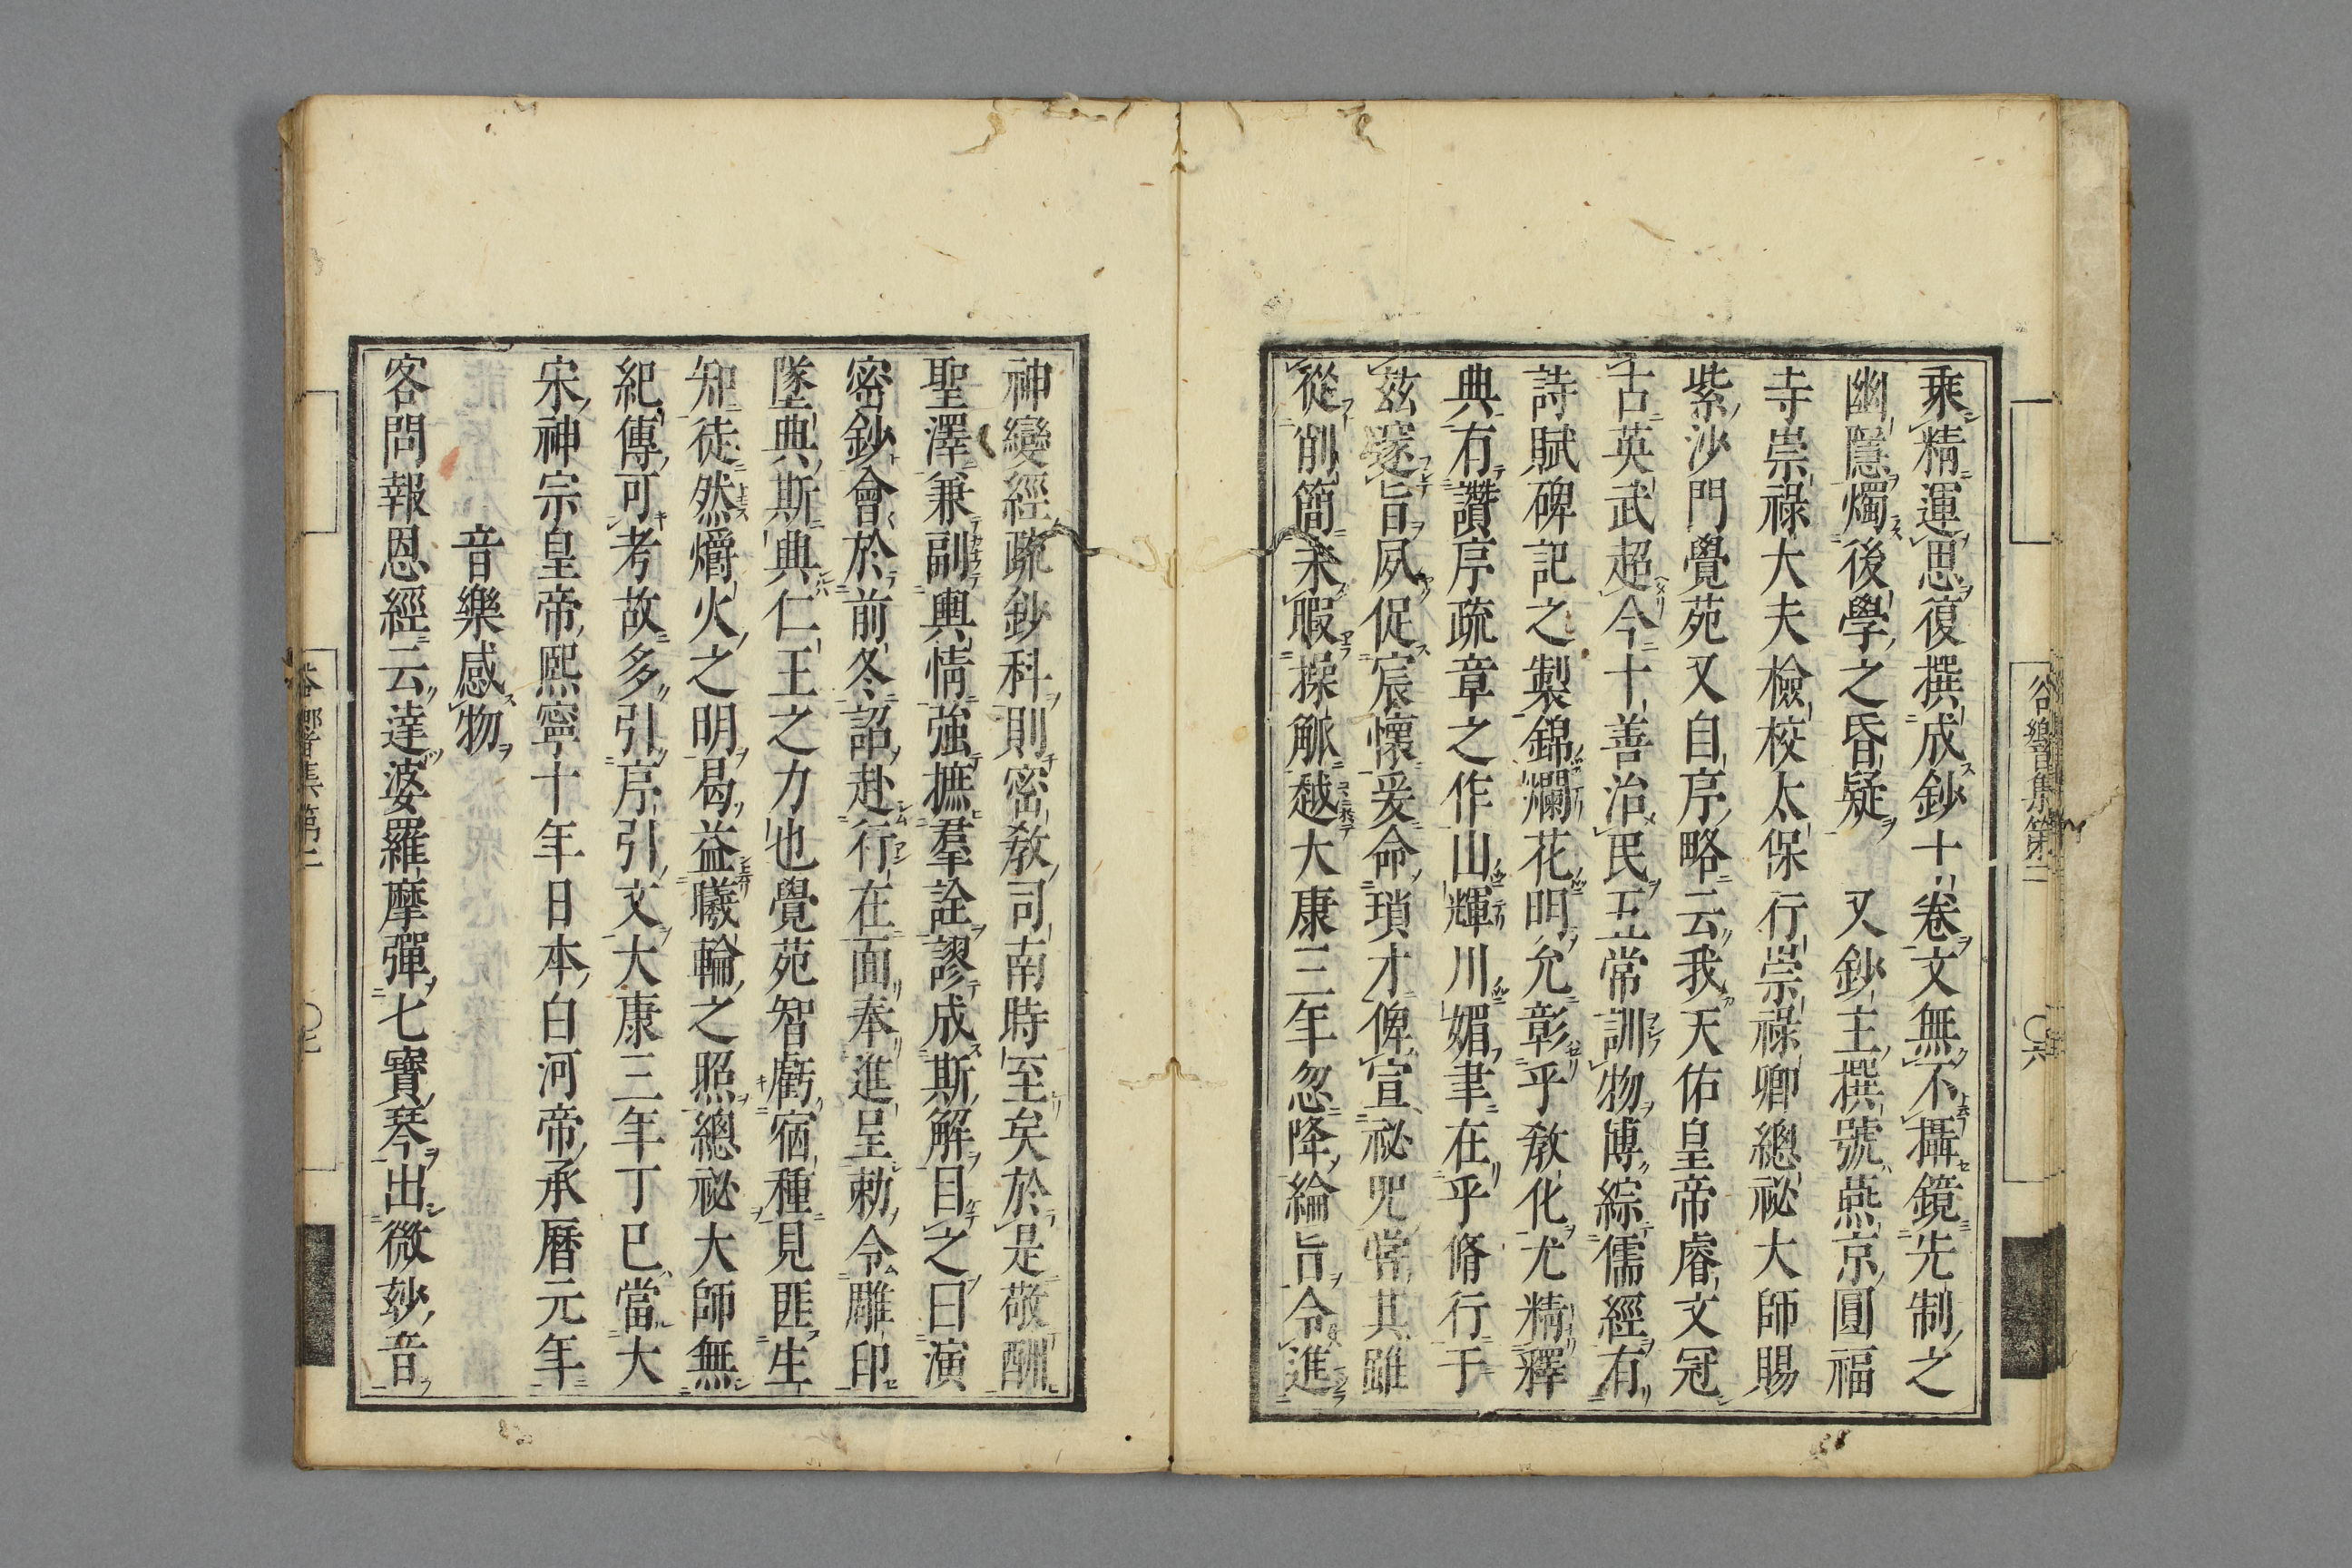 乘精運思復撰成鈔十卷文無不攝鏡先制之
幽隱燭後學之昏疑　又鈔主撰號燕京圓福
寺崇祿大夫檢校太保行崇祿卿總祕大師賜
紫沙門覺苑又自序略云我天佑皇帝睿文冠
古英武超今十善治民五常訓物博綜儒經有
詩賦碑記之製錦爛花明允彰乎敎化尤精釋
典有讚序疏章之作山輝川媚聿在乎脩行于
茲邃旨夙促宸懷爰命瑣才俾宣祕咒嘗其雖
從削簡未暇操觚越大康三年忽降綸旨令進
神變經疏鈔科則密敎司南時至矣於是敬酬
聖澤兼副輿情強摭羣詮謬成斯解目之曰演
密鈔會於前冬詔赴行在面奉進呈勅令雕印
墜典斯典仁王之力也覺苑智虧宿種見匪生
知徒然爝火之明曷益曦輪之照總祕大師無
紀傳可考故多引序引文大康三年丁巳當大
宋神宗皇帝熙寧十年日本白河帝承曆元年
音樂感物
客問報恩經云達婆羅摩彈七寶琴出微玅音
谷響集第二
〇六
谷響集第二
〇七